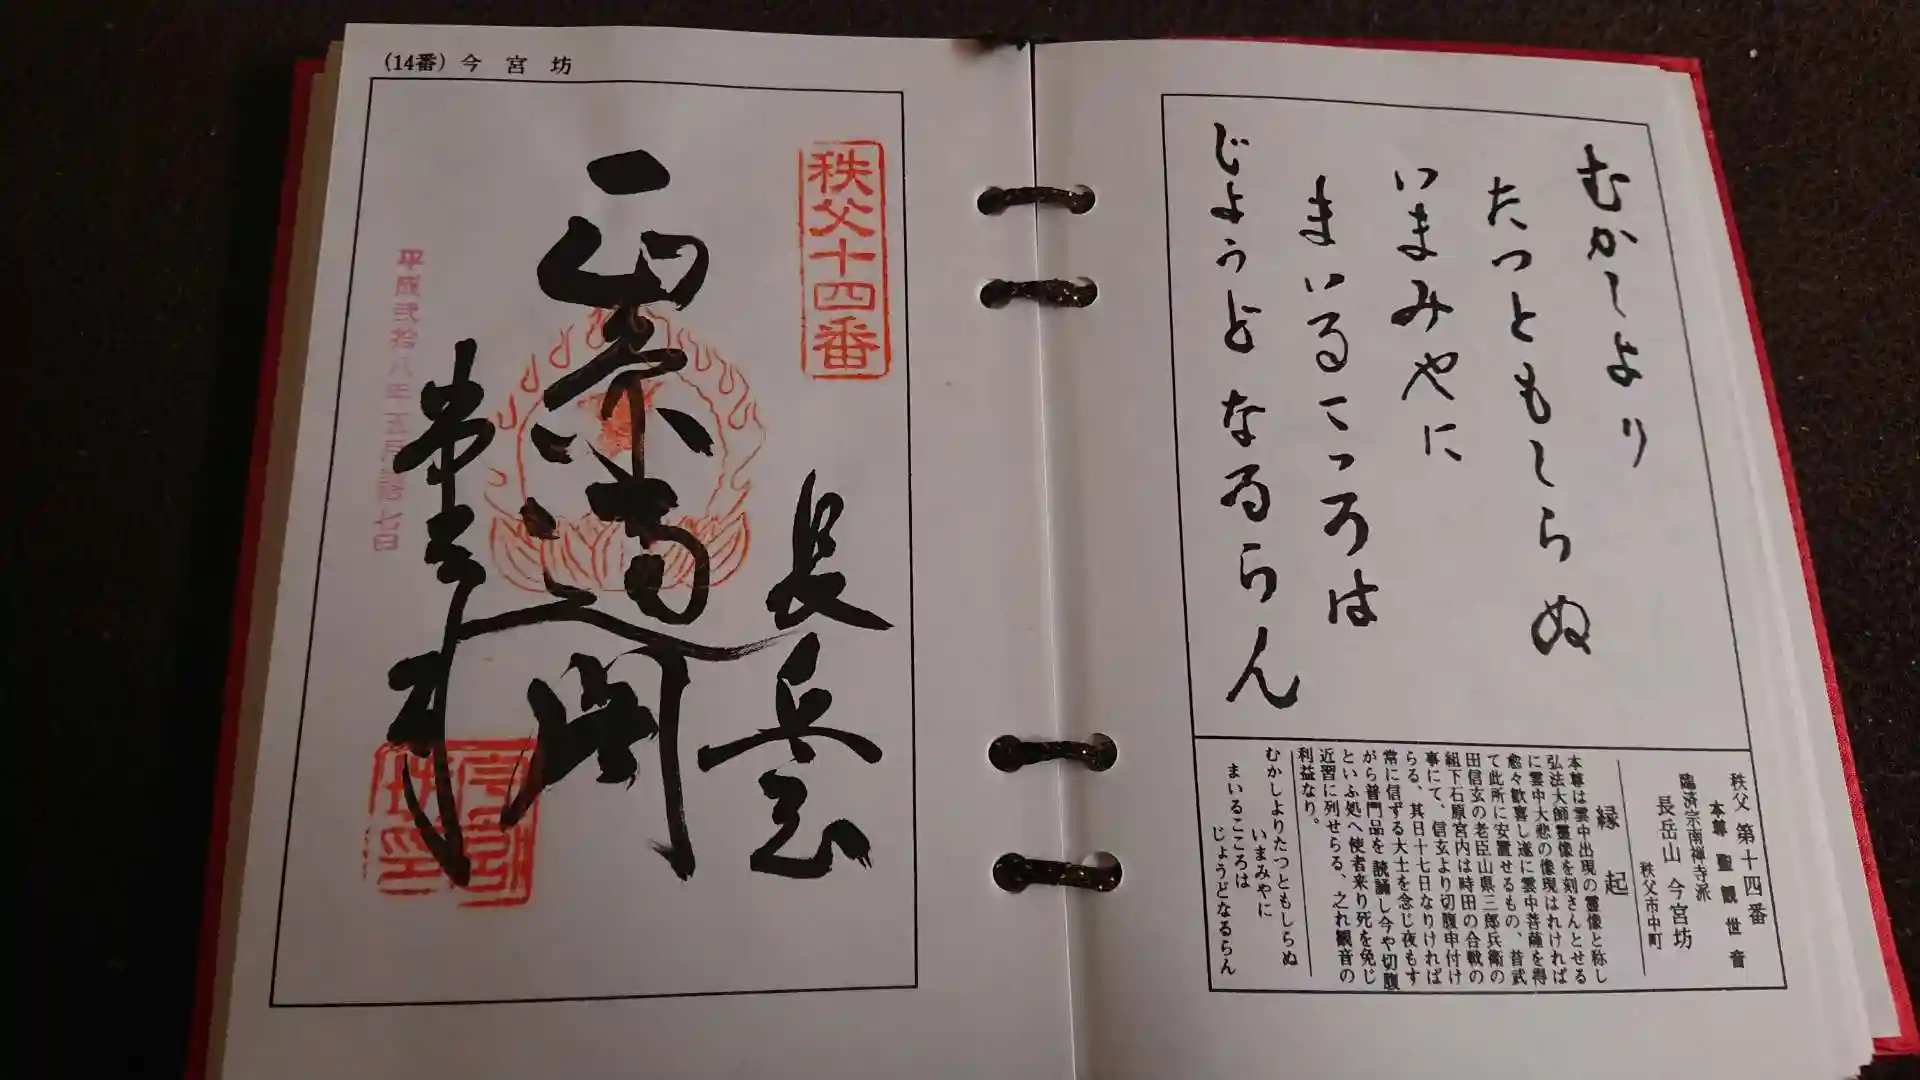 (14番) 今宮坊
秩父十四番
長岳山
正
圓通閣
平成弐拾八年五月拾七日
むかしより
たつともしらぬ
いまみやに
まいるこゝろは
じようどなるらん
秩父 第十四番
本尊 聖観世音
臨済宗南禅寺派
長岳山 今宮坊
秩父市中町
縁起
本尊は雲中出現の霊像と称し
弘法大師霊像を刻さんとせる
に雲中大悲の像現はれければ
愈々歓喜し遂に雲中菩薩を得
て此所に安置せるもの、昔武
田信玄の老臣山県三郎兵衛の
組下石原宮内は時田の合戦の
事にて、信玄より切腹申付け
らる、其日十七日なりければ
常に信ずる大士を念じ夜もす
がら普門品を読誦し今や切腹
といふ処へ使者来り死を免じ
近習に列せらる、之れ観音の
利益なり。
むかしよりたつともしらぬ
いまみやに
まいるこころは
じょうどなるらん